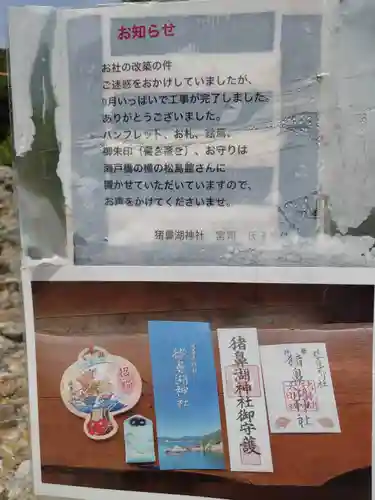 お知らせ
お社の改築の件
ご迷惑をおかけしていましたが、
月いっぱいで工事が完了しました。
ありがとうございました。
パンフレット、お札、絵馬、
御朱印（書き置き）、お守りは
瀬戸橋の横の松島館さんに
置かせていただいていますので、
お声をかけてくださいませ。
猪鼻湖神社 宮司
猪鼻湖神社
猪鼻湖神社御守護